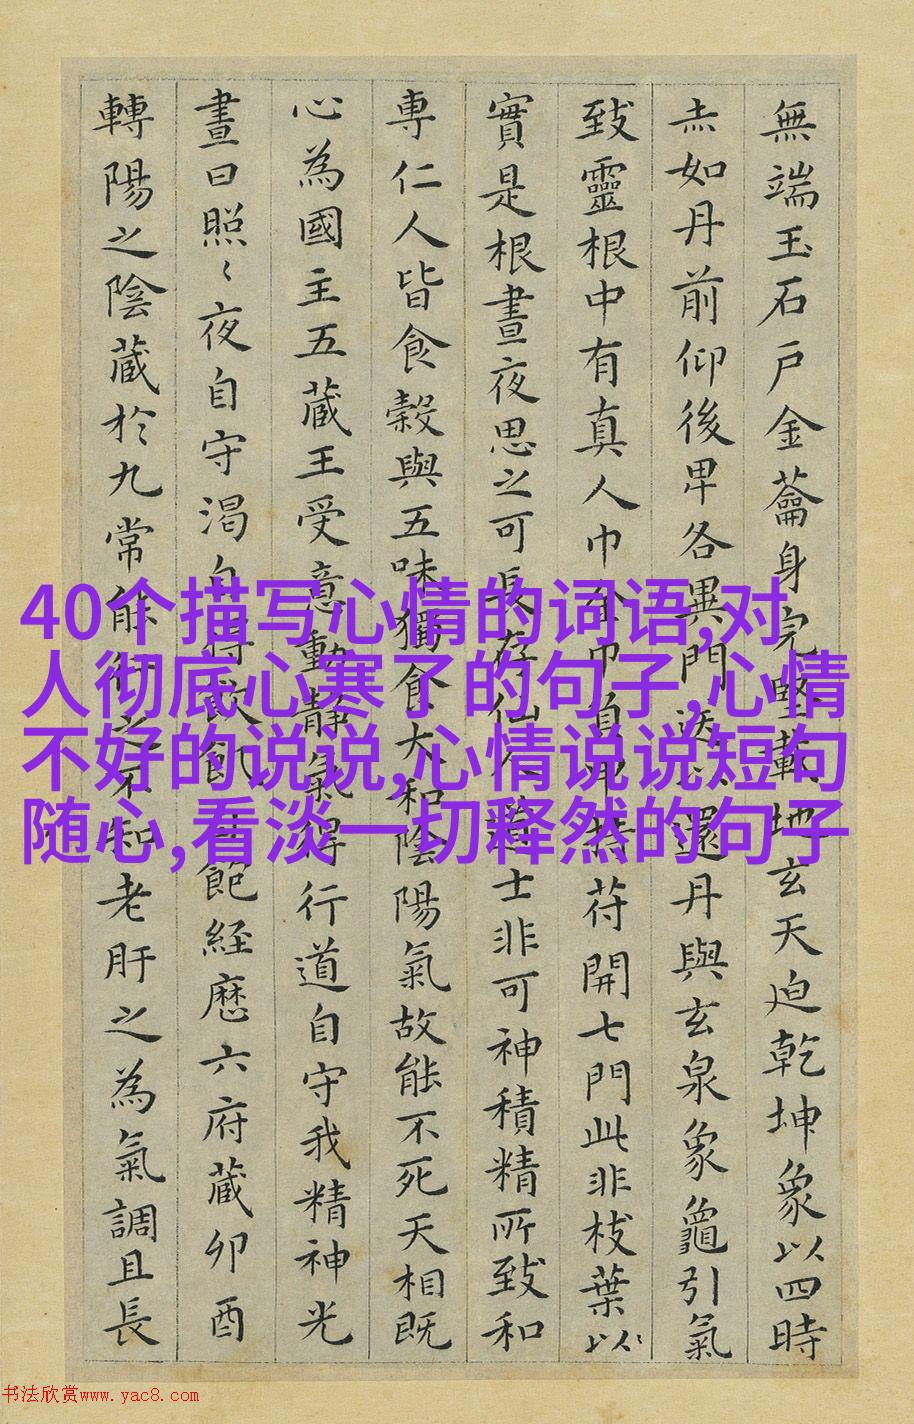 無端玉石戶金蘥身完堅載地玄天迫乾坤象以四時
赤如丹前仰後卑各異門送以還丹與玄泉象龜引氣
致靈根中有真人巾金巾負甲持符開七門此非枝葉以
實是根晝夜思之可長存仙人道士非可神積精所致和
專仁人皆食穀與五味獨食大和陰陽氣故能不死天相既
心為國主五蔵王受意動静氣得行道自守我精神光
晝日照〻夜自守渴自得飲飢自飽経歷六府蔵卯酉
轉陽之陰蔵於九常能行之不知老肝之為氣調且長
40个描写心情的词语,对
人彻底心寒了的句子,心情
不好的说说,心情说说短句
随心,看淡一切释然的句子
书法欣赏www.yac8.com